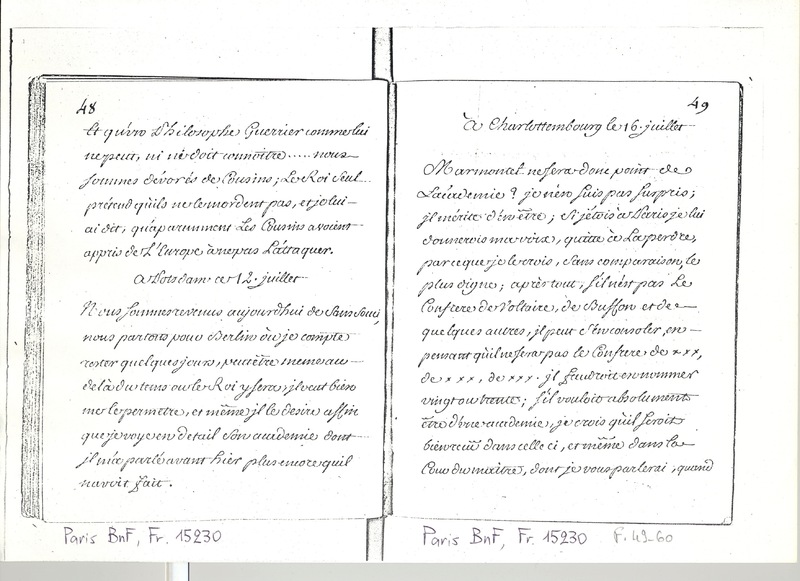 48
Et qu'un Philosophe Guerrier comme lui
ne peut, ni ne doit connoître ..... nous
sommes dévorés de Cousins; Le Roi seul
prétend qu'ils ne le mordent pas, et je lui
ai dit, qu'aparamment Les Cousins avoient
appris de L'Europe à ne pas L'attaquer.
a Potsdam ce 12. juillet
Nous sommes revenus aujourdhui de Sans Souci,
nous partons pour Berlin où je compte
rester quelques jours, peutêtre meme au
delà du tems où le Roi y sera; jl veut bien
me le permetre, et même jl le désire affin
que je voye en detail son academie dont
jl m'a parlé avant hier plus encore qu'il
n'avoit fait.
Paris BnF, Fr. 15230
49
à Charlottembourg le 16. juillet
Marmontel ne sera donc point de
L'academie? je n'en suis pas surpris;
jl mérite d'en être; si j'étois à Paris je lui
donnerois ma voix, quitte à La perdre,
parce que je le crois, sans comparaison, le
plus digne; après tout, s'il n'est pas Le
Confrere de Voltaire, de Buffon et de
quelques autres, jl peut s'en consoler, en
pensant qu'il ne sera pas le Confrere de xxx,
de xxx, de xxx. jl faudroit en nommer
vingt ou trente; s'il vouloit absolument
être d'une academie, je crois qu'il seroit
bien reçû dans celle ci, et même dans la
Cour du maître, dont je vous parlerai, quand
Paris BnF, Fr. 15230 F. 49-60